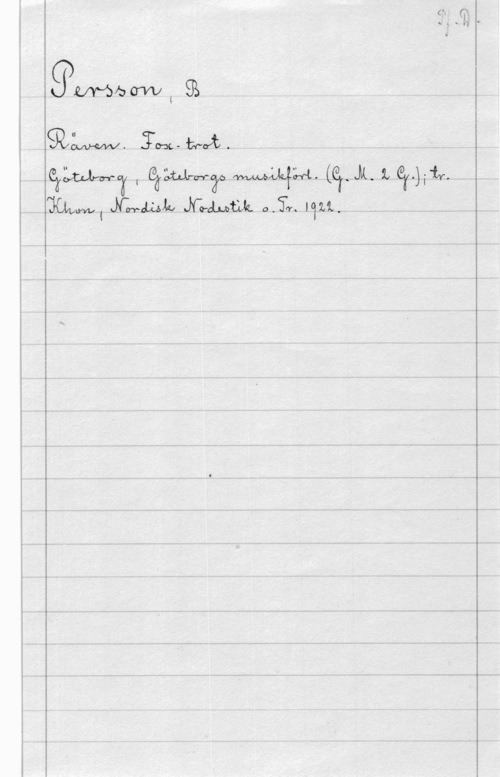 Pf.-D.
Persson, B
Råven. Fox-trot.
Göteborg, Göteborgs musikförl. (G. M. 2 G.); tr.
Khvn, Nordisk Nodestik o. Tr. 1922.